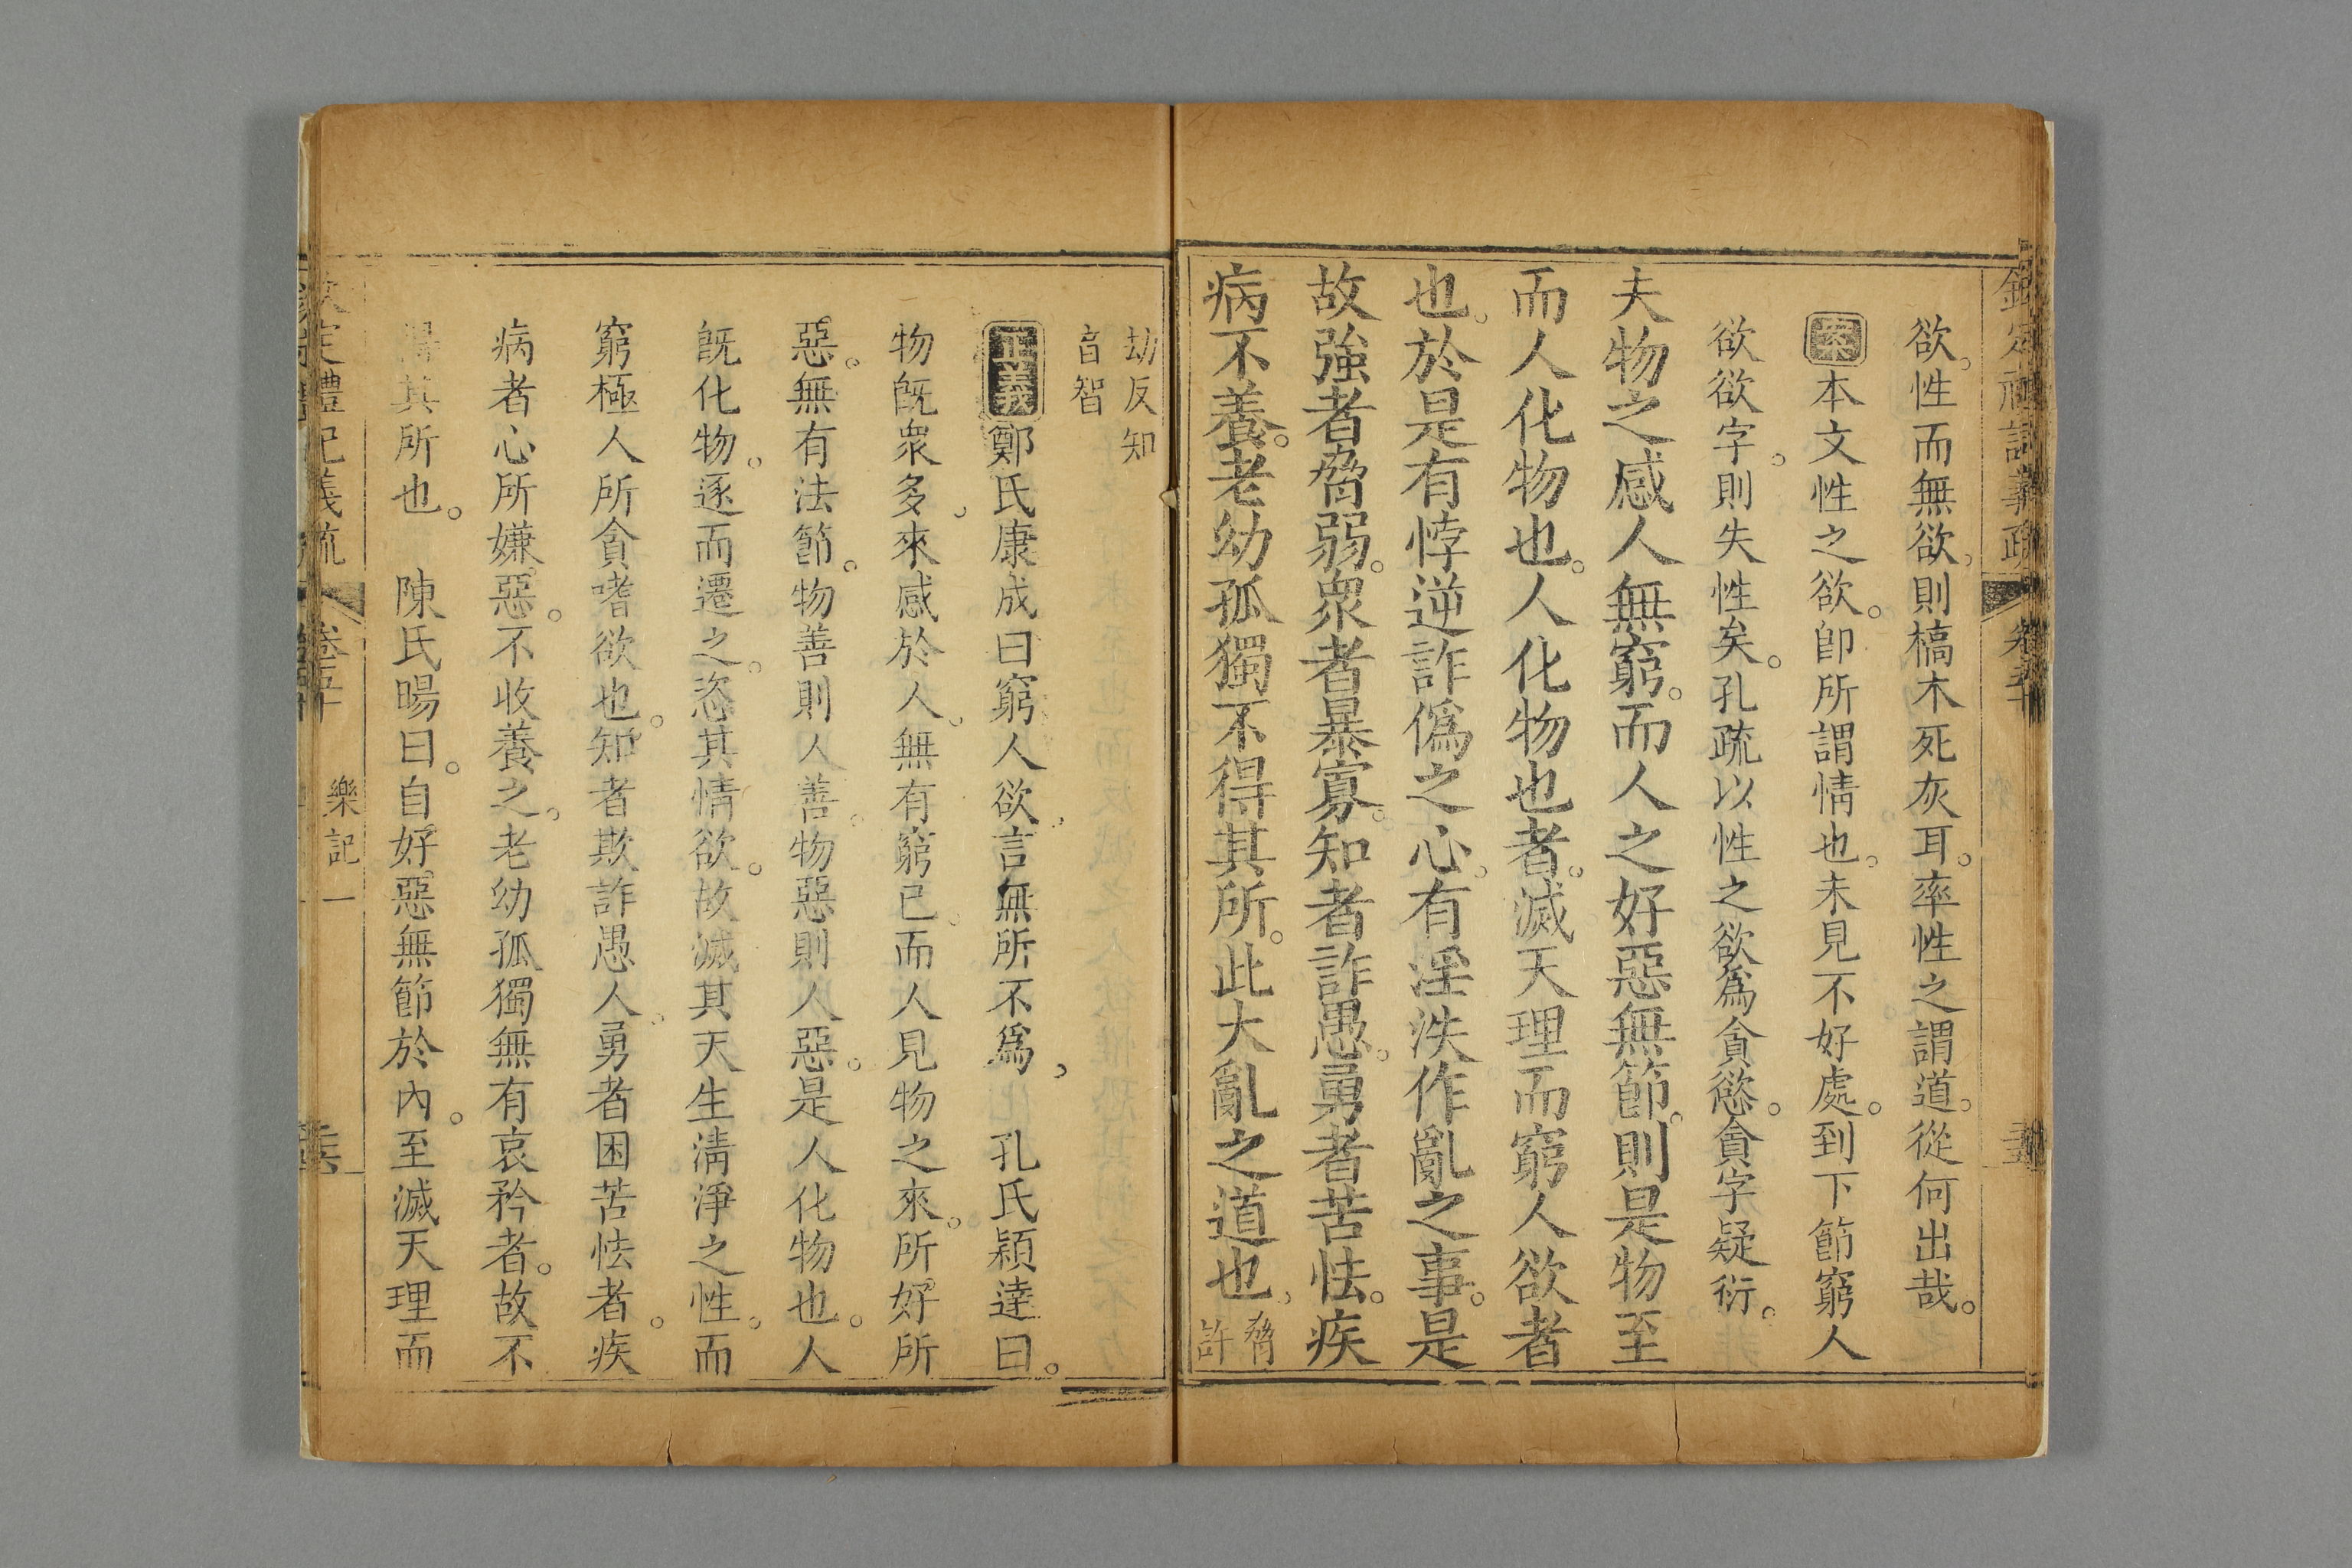 欽定禮記義疏 卷五十
欲。性而無欲。則槁木死灰耳。率性之謂道。從何出哉。
案本文性之欲。卽所謂情也。未見不好處。到下節窮人
欲欲字。則失性矣。孔疏以性之欲爲貪慾。貪字疑衍。
夫物之感人無窮。而人之好惡無節。則是物至
而人化物也。人化物也者。滅天理而窮人欲者
也。於是有悖逆詐僞之心。有淫泆作亂之事。是
故強者脅弱。衆者暴寡。知者詐愚。勇者苦怯。疾
病不養。老幼孤獨不得其所。此大亂之道也。脅許
劫反知
音智
正義鄭氏康成曰窮人欲。言無所不爲。 孔氏穎達曰。
物旣衆多。來感於人。無有窮已。而人見物之來。所好所
惡。無有法節。物善則人善。物惡則人惡。是人化物也。人
旣化物。逐而遷之。恣其情欲。故滅其天生淸淨之性。而
窮極人所貪嗜欲也。知者欺詐愚人。勇者困苦怯者。疾
病者心所嫌惡。不收養之。老幼孤獨無有哀矜者。故不
得其所也。 陳氏暘曰。自好惡無節於內。至滅天理而
欽定禮記義疏 卷五十 樂記一